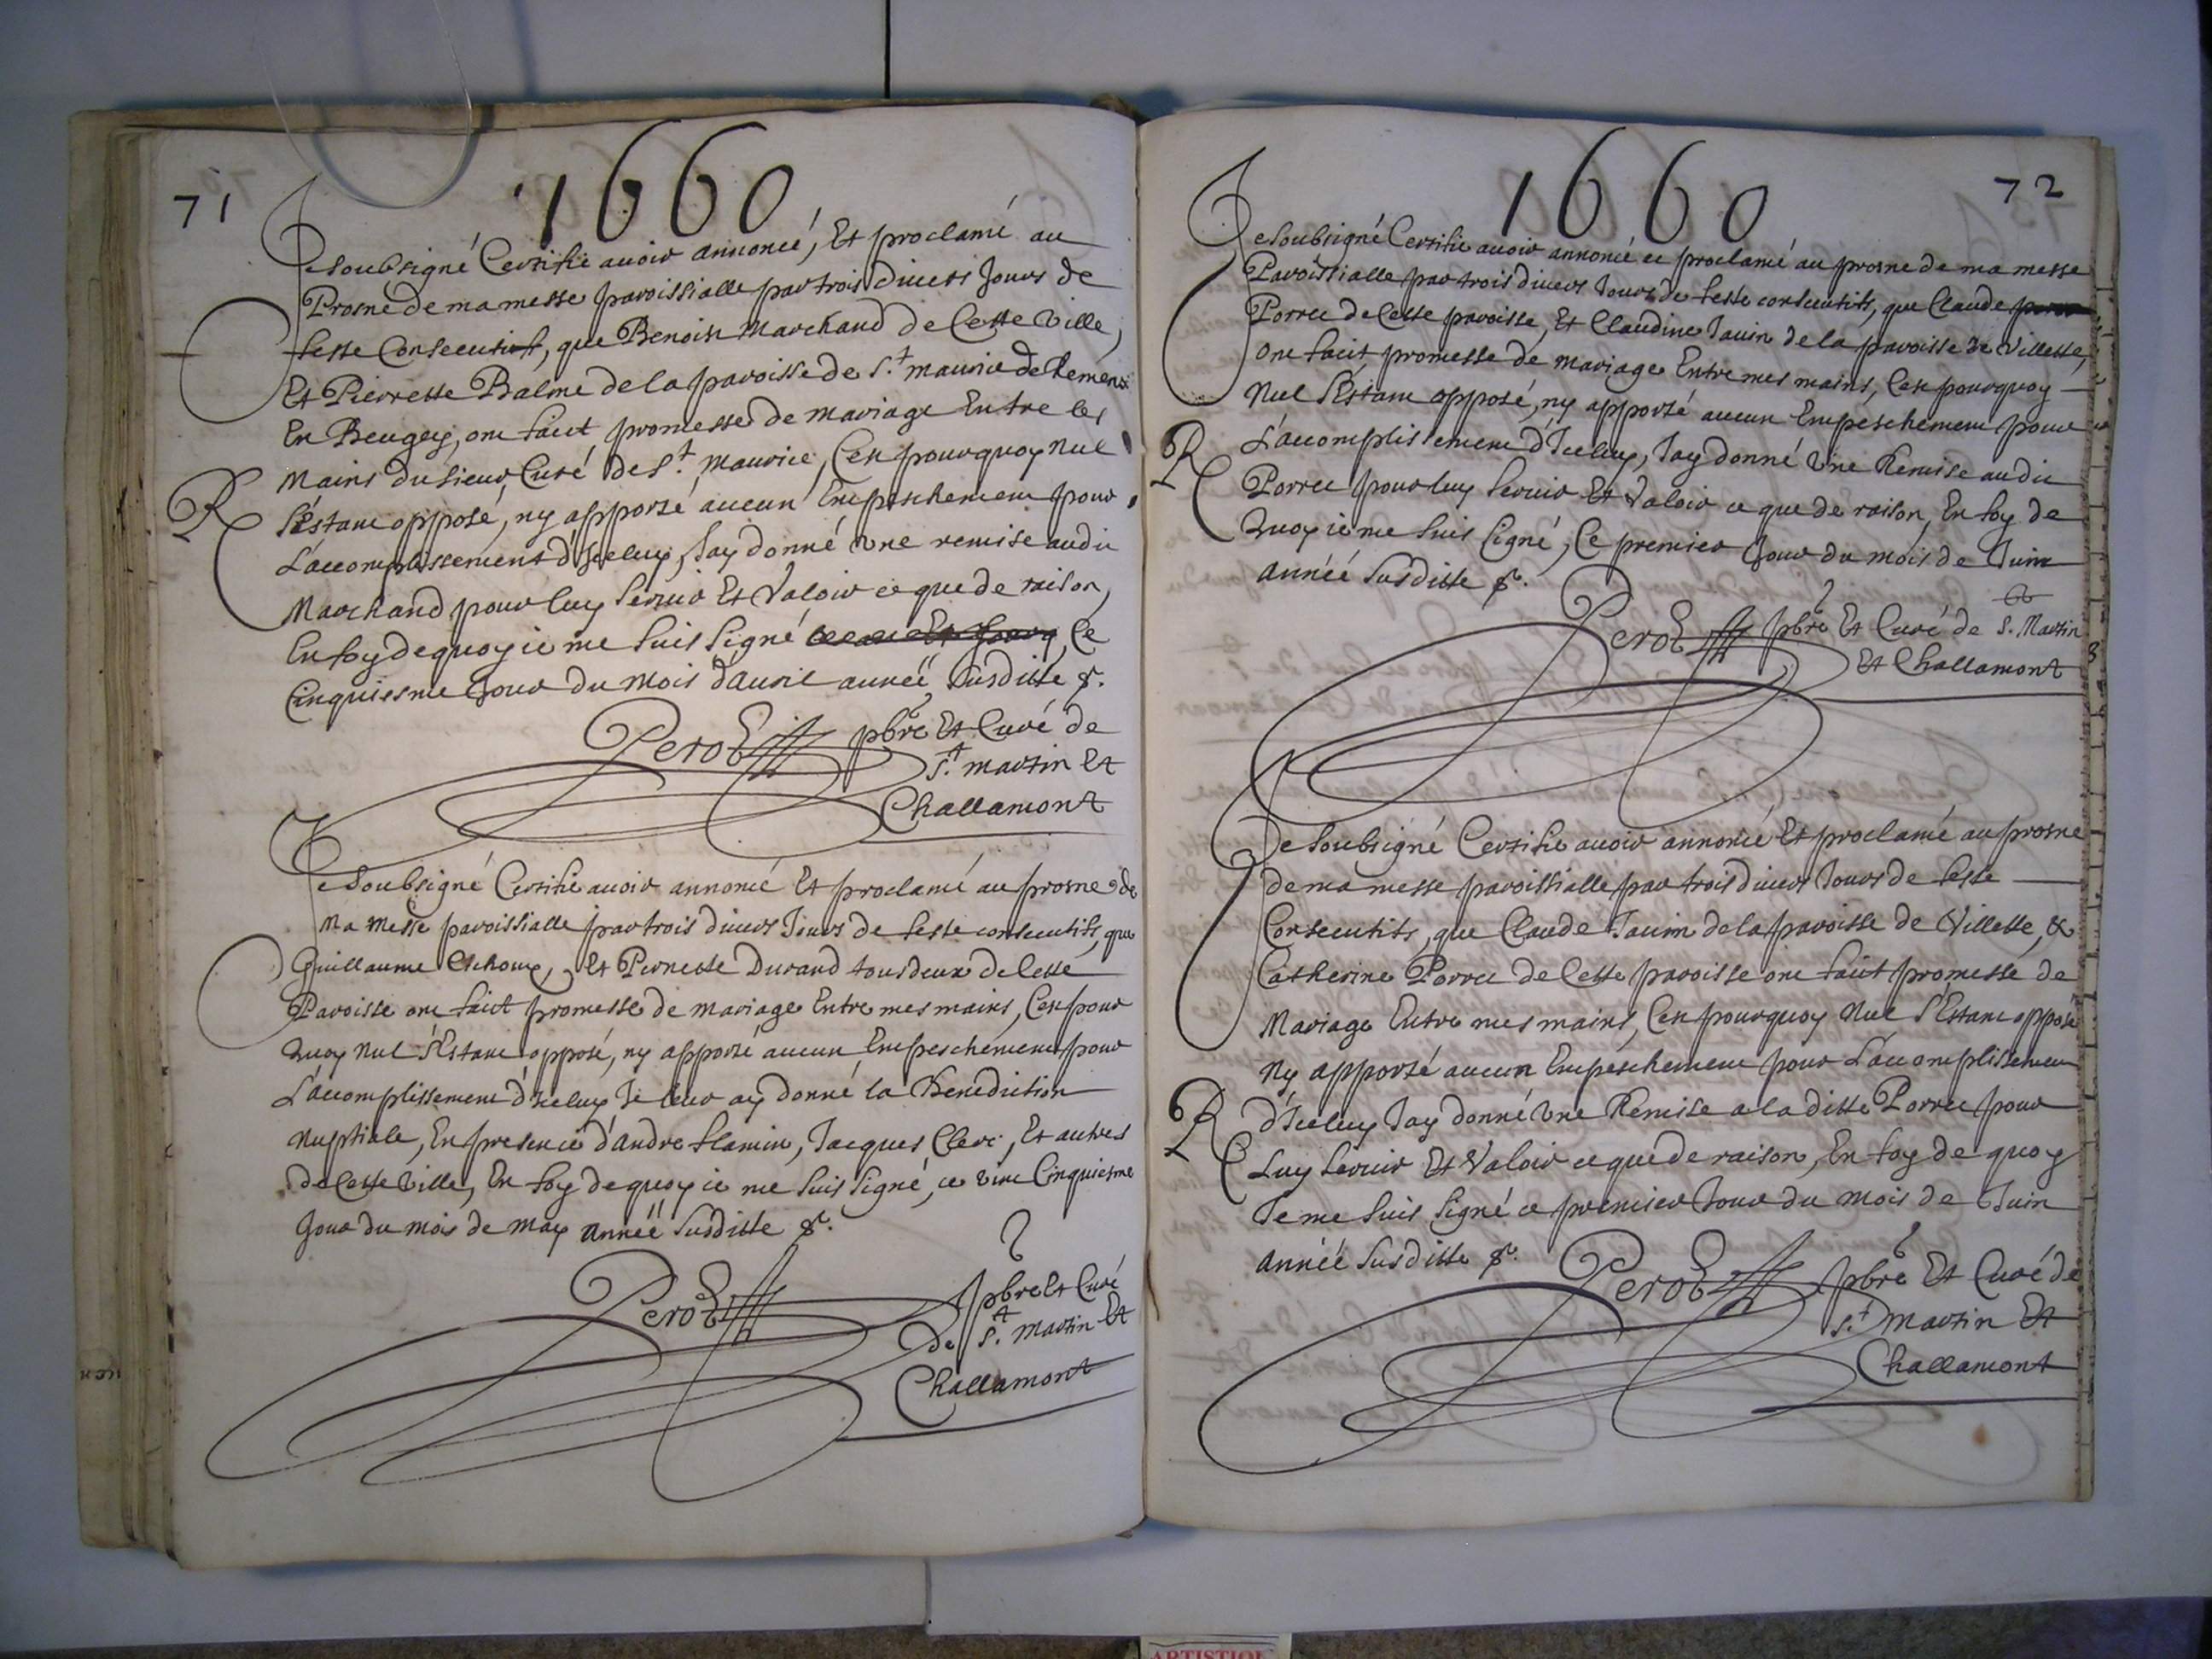 71
1660
Je soubsigné Certifie auoir annoncé, Et proclamé au
Prosne de ma messe paroissialle par trois diuers Jours de
feste Consecutifs, que Benoist Marchand de Cette Ville,
Et Pierrette Balme de la paroisse de S.t maurice de Remens
En Beugey, ont faict promesse de mariage Entre les
mains du sieur Curé de S.t Maurice, Cest pourquoy nul
s'éstant opposé, ny apporté aucun Empeschement pour
L'accomplissement d'Iceluy, Jay donné vne remise audit
Marchand pour luy seruir Et Valoir ce que de raison,
En foy de quoy ie me suis signé Ce
Cinquiesme Jour du mois d'auril année susditte &.
Perot pbre Et Curé de
S.t martin Et
Challamont
Je soubsigné Certifie auoir annoncé Et proclamé au prosne de
Ma messe paroissialle par trois diuers Jours de feste consecutifs, que
Guillaume Et Pernette Durand tous deux de Cette
Paroisse ont faict promesse de mariage Entre mes mains, Cest pour
Quoy nul s'éstant opposé, ny apporté aucun Empeschement pour
L'accomplissement d'Iceluy Je leur ay donné la Benediction
nuptiale, En presence d'andre flamin, Jacques Clerc, Et autres
de Cette Ville, En foy de quoy ie me suis signé, ce vint Cinquiesme
Jour du mois de may année susditte &.
Perot pbre Et Curé
de S.t martin Et
Challamont
72
1660
Je soubsigné Certifie auoir annoncé et proclamé au prosne de ma messe
Paroissialle par trois diuers Jours de feste consecutifs, que Claude
Porret de Cette paroisse, Et Claudine Jauin de la paroisse de Villette,
ont faict promesse de mariage Entre mes mains, Cest pourquoy
Nul s'Estant opposé, ny apporté aucun Empeschement pour
L'accomplissement d'Iceluy, Jay donné Vne Remise audit
Porret pour luy seruir Et Valoir ce que de raison, En foy de
Quoy ie me suis signé, Ce premier Jour du mois de Juin
année susditte &.
Perot pbre Et Curé de S. Martin
Et Challamont
Je soubsigné Certifie auoir annoncé Et proclamé au prosne
de ma messe paroissialle par trois diuers Jours de feste
Consecutifs, que Claude Jauin de la paroisse de Villette, &
Catherine Porret de Cette paroisse ont faict promesse de
Mariage Entre mes mains, Cest pourquoy Nul s'Estant opposé
Ny apporté aucun Empeschement pour L'accomplissement
d'Iceluy Jay donné Vne Remise a la ditte Porret pour
Luy seruir Et Valoir ce que de raison, En foy de quoy
Je me suis signé ce premier Jour du mois de Juin
année susditte &.
Perot pbre Et Curé de
S.t martin Et
Challamont